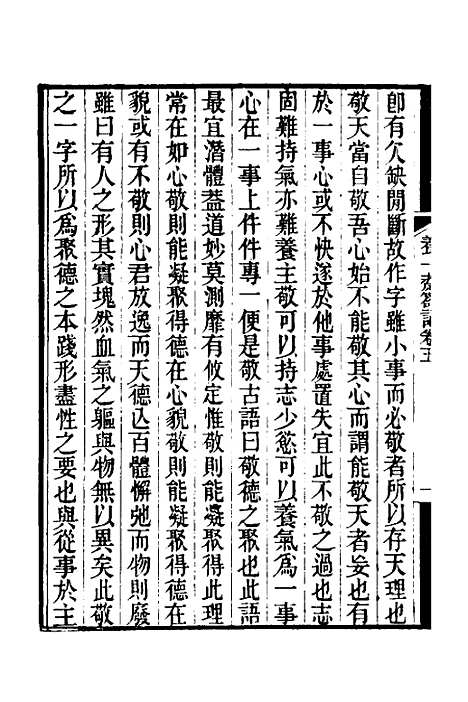 即有欠缺閒斷故作字雖小事而必敬者所以存天理也
敬天當自敬吾心始不能敬其心而謂能敬天者妄也有
於一事心或不快遂於他事處置失宜此不敬之過也志
固難持氣亦難養主敬可以持志少慾可以養氣爲一事
心在一事上件件專一便是敬古語曰敬德之聚也此語
最宜潛體葢道妙莫測靡有攸定惟敬則能凝聚得此理
常在如心敬則能凝聚得德在心貌敬則能凝聚得德在
貌或有不敬則心君放逸而天德亾百體懈弛而物則廢
雖曰有人之形其實塊然血氣之軀與物無以異矣此敬
之一字所以爲聚德之本踐形盡性之要也與從事於主
養一齋劄記卷五
一